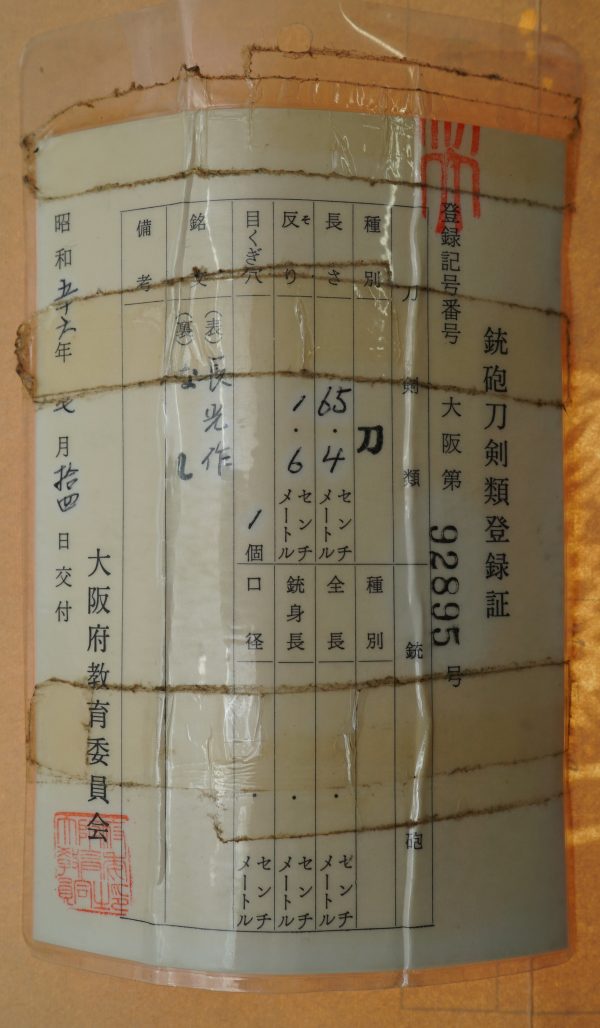 銃砲刀剣類登録証
登録記号番号 大阪第 92895 号
刀剣類
種別 刀
長さ 65.4 センチメートル
反り そ 1.6 センチメートル
目くぎ穴 1個
銘文 (表) 長光作
(裏) なし
銃砲
種別
全長 . センチメートル
銃身長 . センチメートル
口径 . センチメートル
備考
昭和五十六年 七月拾四日交付
大阪府教育委員会